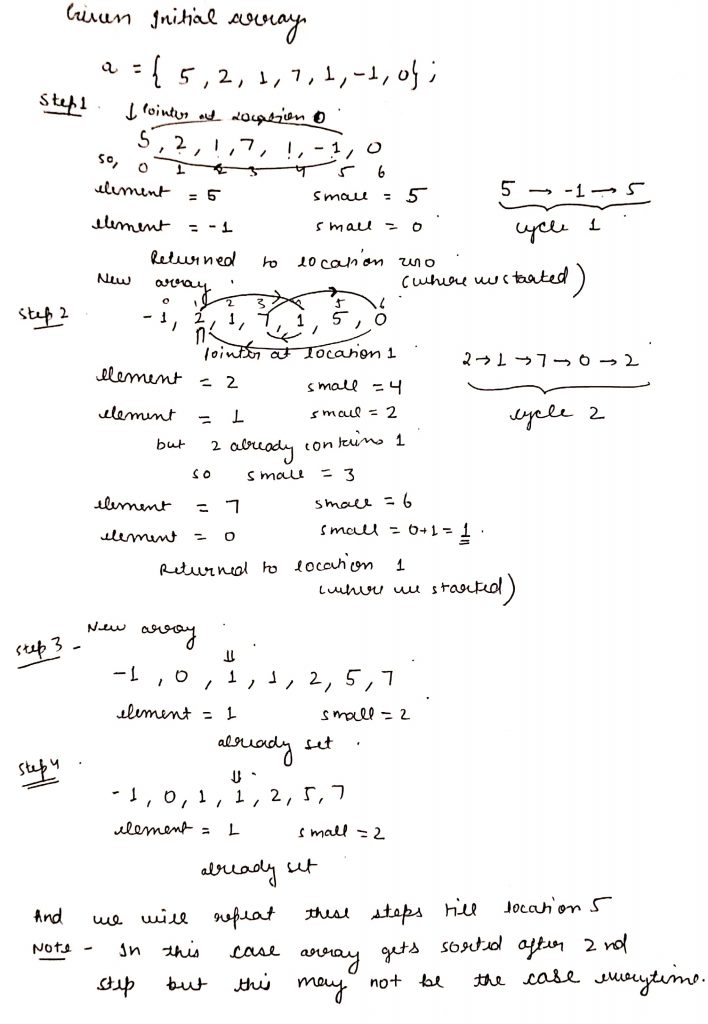 Given Initial array
a = { 5, 2, 1, 7, 1, -1, 0};
Step 1. ↓ Pointer at location 0
5, 2, 1, 7, 1, -1, 0
so, 0 1 2 3 4 5 6
element = 5 small = 5 5 → -1 → 5
element = -1 small = 0 cycle 1
Returned to location zero
New array (where we started)
0 1 2 3 4 5 6
Step 2 -1, 2, 1, 7, 1, 5, 0
Pointer at location 1
element = 2 small = 4 2→1→7→0→2
element = 1 small = 2 cycle 2
but 2 already contains 1
so small = 3
element = 7 small = 6
element = 0 small = 0+1 = 1.
Returned to location 1
(where we started)
New array
Step 3 - ⇓
-1, 0, 1, 1, 2, 5, 7
element = 1 small = 2
already set.
Step 4. ⇓
-1, 0, 1, 1, 2, 5, 7
element = 1 small = 2
already set
And we will repeat these steps till location 5
Note - In this case array gets sorted after 2nd
step but this may not be the case everytime.